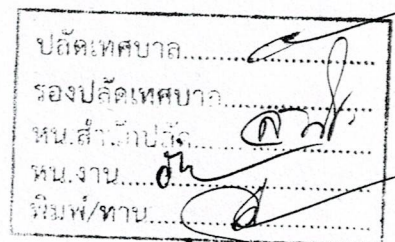 ปลัดเทศบาล
รองปลัดเทศบาล
หน.สำนักปลัด
หน.งาน
พิมพ์/ทาน